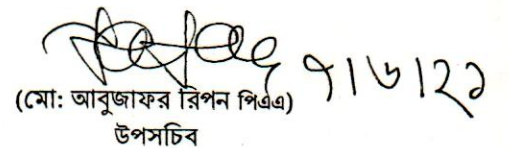 ৭/৬/২১
(মো: আবুজাফর রিপন পিএএ)
উপসচিব